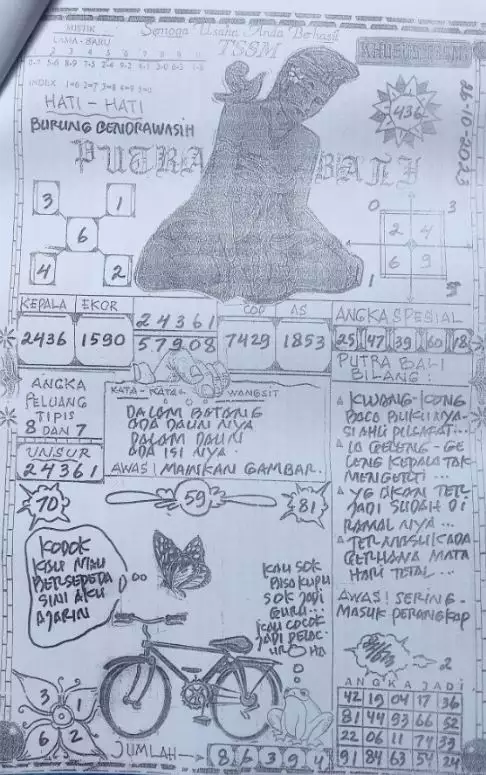 Semoga Usaha Anda Berhasil
TSSM
MISTIK
LAMA - BARU
INDEX 1=6 2=7 3=8 4=9 5=0
HATI - HATI
BURUNG CENDRAWASIH
436
22-10-2023
PUTRA BALI
3 1
6
4 2
0 3
2 4
6 9
1
KEPALA EKOR
2436 1590
24361
57908
COP AS
7429 1853
ANGKA SPESIAL
25 47 39 60 18
ANGKA
PELUANG
TIPIS
8 DAN 7
UNSUR
24361
KATA - KATA WANGSIT
DALAM BATANG
ADA DAUN NYA
DALAM DAUN
ADA ISI NYA.
AWAS! MAINKAN GAMBAR.
PUTRA BALI
BILANG:
BACA BUKU NYA-
SI AHLI
GELENG - GE
LENG KEPALA TAK
MENGERTI...
YG AKAN TER
JADI SUDAH DI
RAMAL NYA...
TERMASUK ADA
GERHANA MATA
HARI TOTAL...
AWAS! SERING-
MASUK PERANGKAP
70
59
81
KODOK
KAU MAU
BERSEPEDA
SINI AKU
AJARIN
KAU SOK
BISA KUPU
SOK JADI
GURU...
KAU COCOK
JADI
2
3 1
6 2
JUMLAH
8 6 3 9 4
ANGKA JADI
42 19 04 17 36
81 44 93 66 52
22 06 11 74 39
91 84 63 54 24